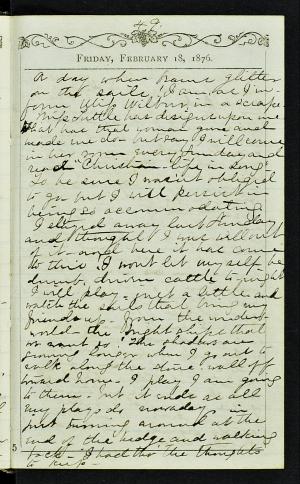 49
FRIDAY, FEBRUARY 18, 1876.
A day when hames glitter
on the sails, "I am, as I in-
form Miss Wilburn, in a scrape
Miss has designs upon me
What has that woman gone and
made me do but say I will come
in her room every Sunday and
read "Christian life in Song"
To be sure I wasn't obliged
to go but I will persist in
being so accommodating
I stayed away last Sunday
and thought I was well out
of it - and here it has come
to this I won't let myself be
dumb, driven cattle to-night
I will play - just a little and
watch the sails that bring my
friends up from the under
world - the bright ships that
The shadows are
growing longer when I go out to
walk along the stone wall off
toward home - I play I am going
to them - but it ends as all
my plays do nowadays in
just turning around at the
end of the hedge and walking
back - I had the thoughts
to keep -
5